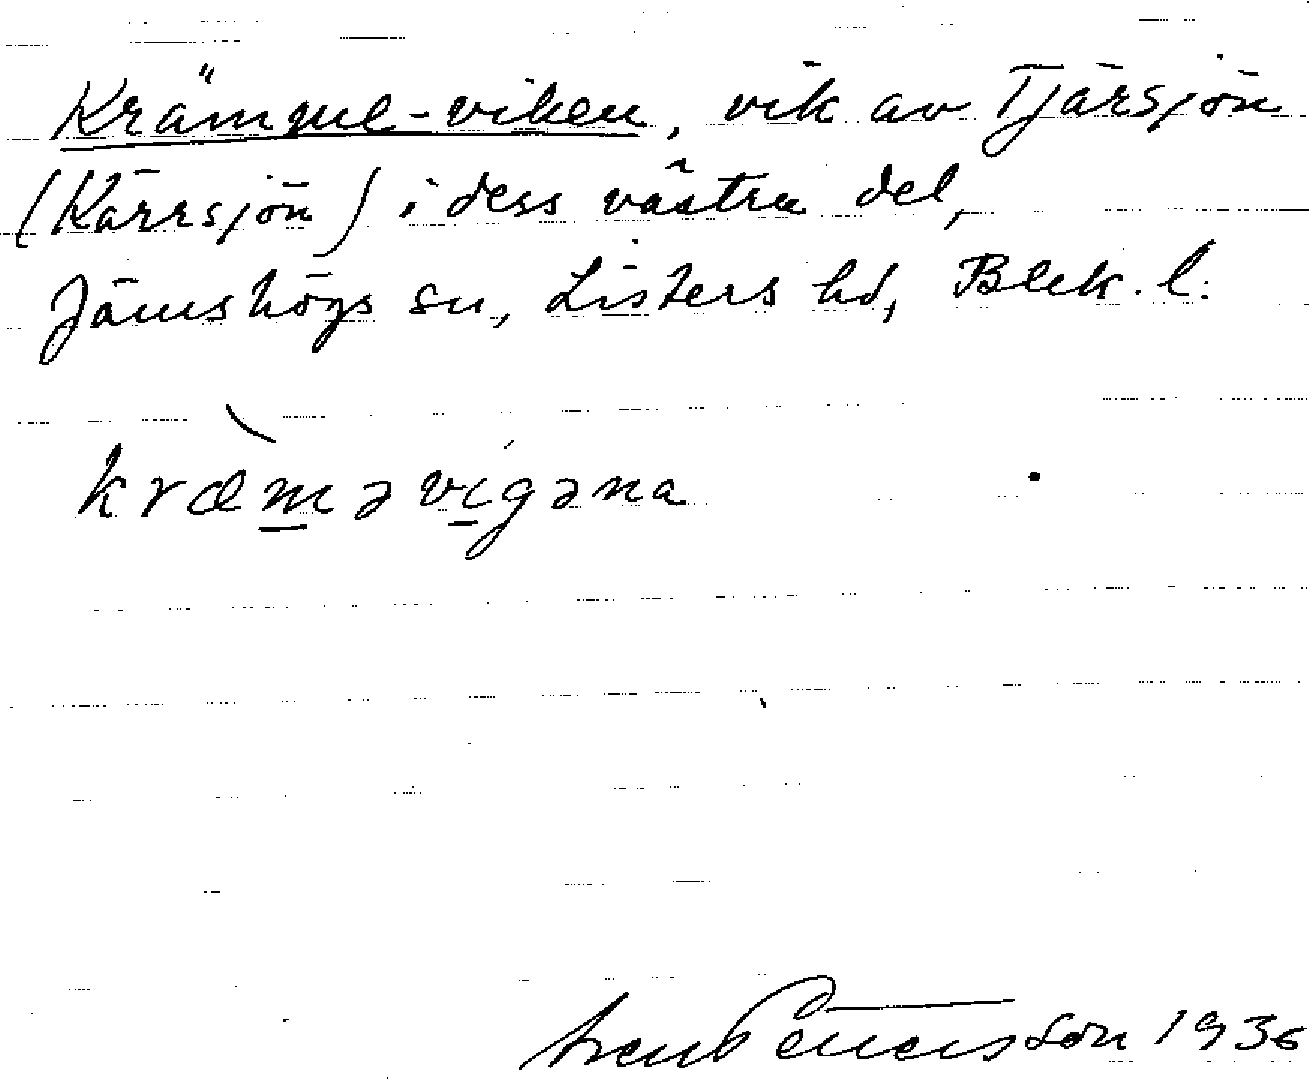 Krämgul-viken, vik av Tjärsjön
(Kärrsjön) i dess västra del,
Jämshögs sn, Listers hd, Blek. l.
kræmǝvigǝna
Pettersson 1936